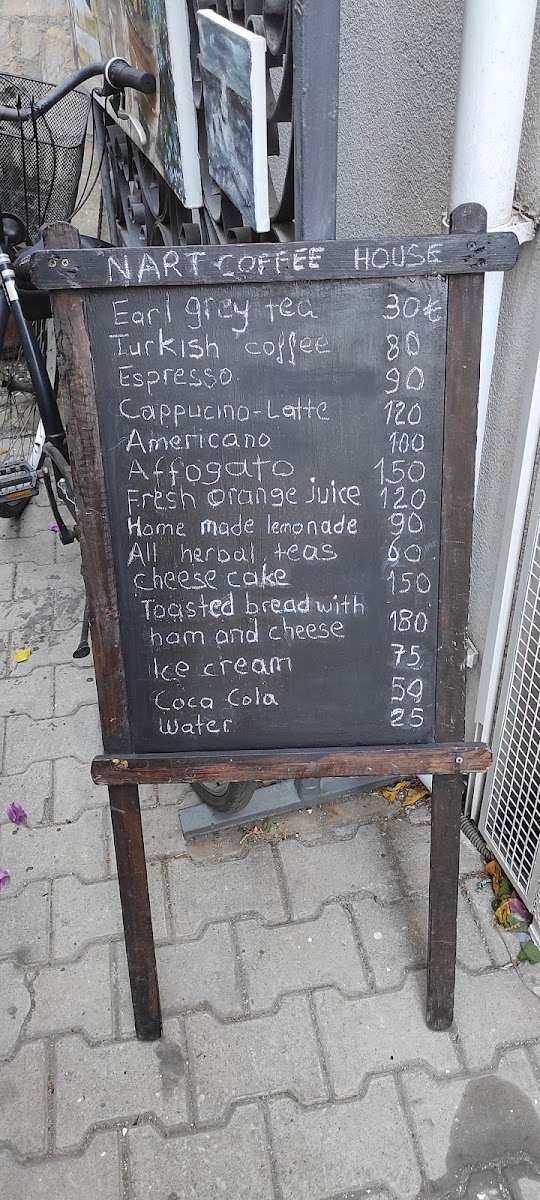 NART COFFEE HOUSE
Earl grey tea 30₺
Turkish coffee 80
Espresso 90
Cappucino-Latte 120
Americano 100
Affogato 150
Fresh orange juice 120
Home made lemonade 90
All herbal teas 60
cheese cake 150
Toasted bread with
ham and cheese 180
Ice cream 75
Coca Cola 50
Water 25